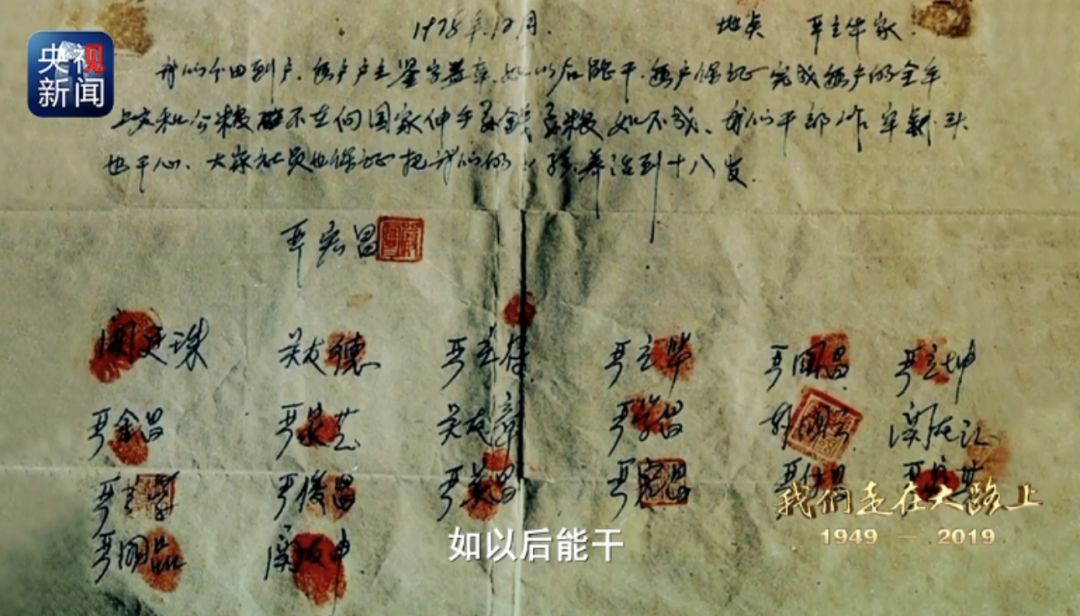 央视
新闻
1978年12月. 地点 严立华家.
我们分田到户,每户户主签字盖章,如以后能干,每户保证完成每户的全年
上交和公粮不在向国家伸手要钱要粮如不成,我们干部作牢刹头
也干心,大家社员也保证把我们的小孩养活到十八岁.
严宏昌
关廷珠 关友德 严立符 严立华 严国昌 严立坤
严金昌 严家芝 关友章 严学昌 韩国云 关友江
严立学 严俊昌 严美昌 严宏昌 严付昌 严家其
严国品 关友申
我们走在大路上
1949 — 2019
如以后能干